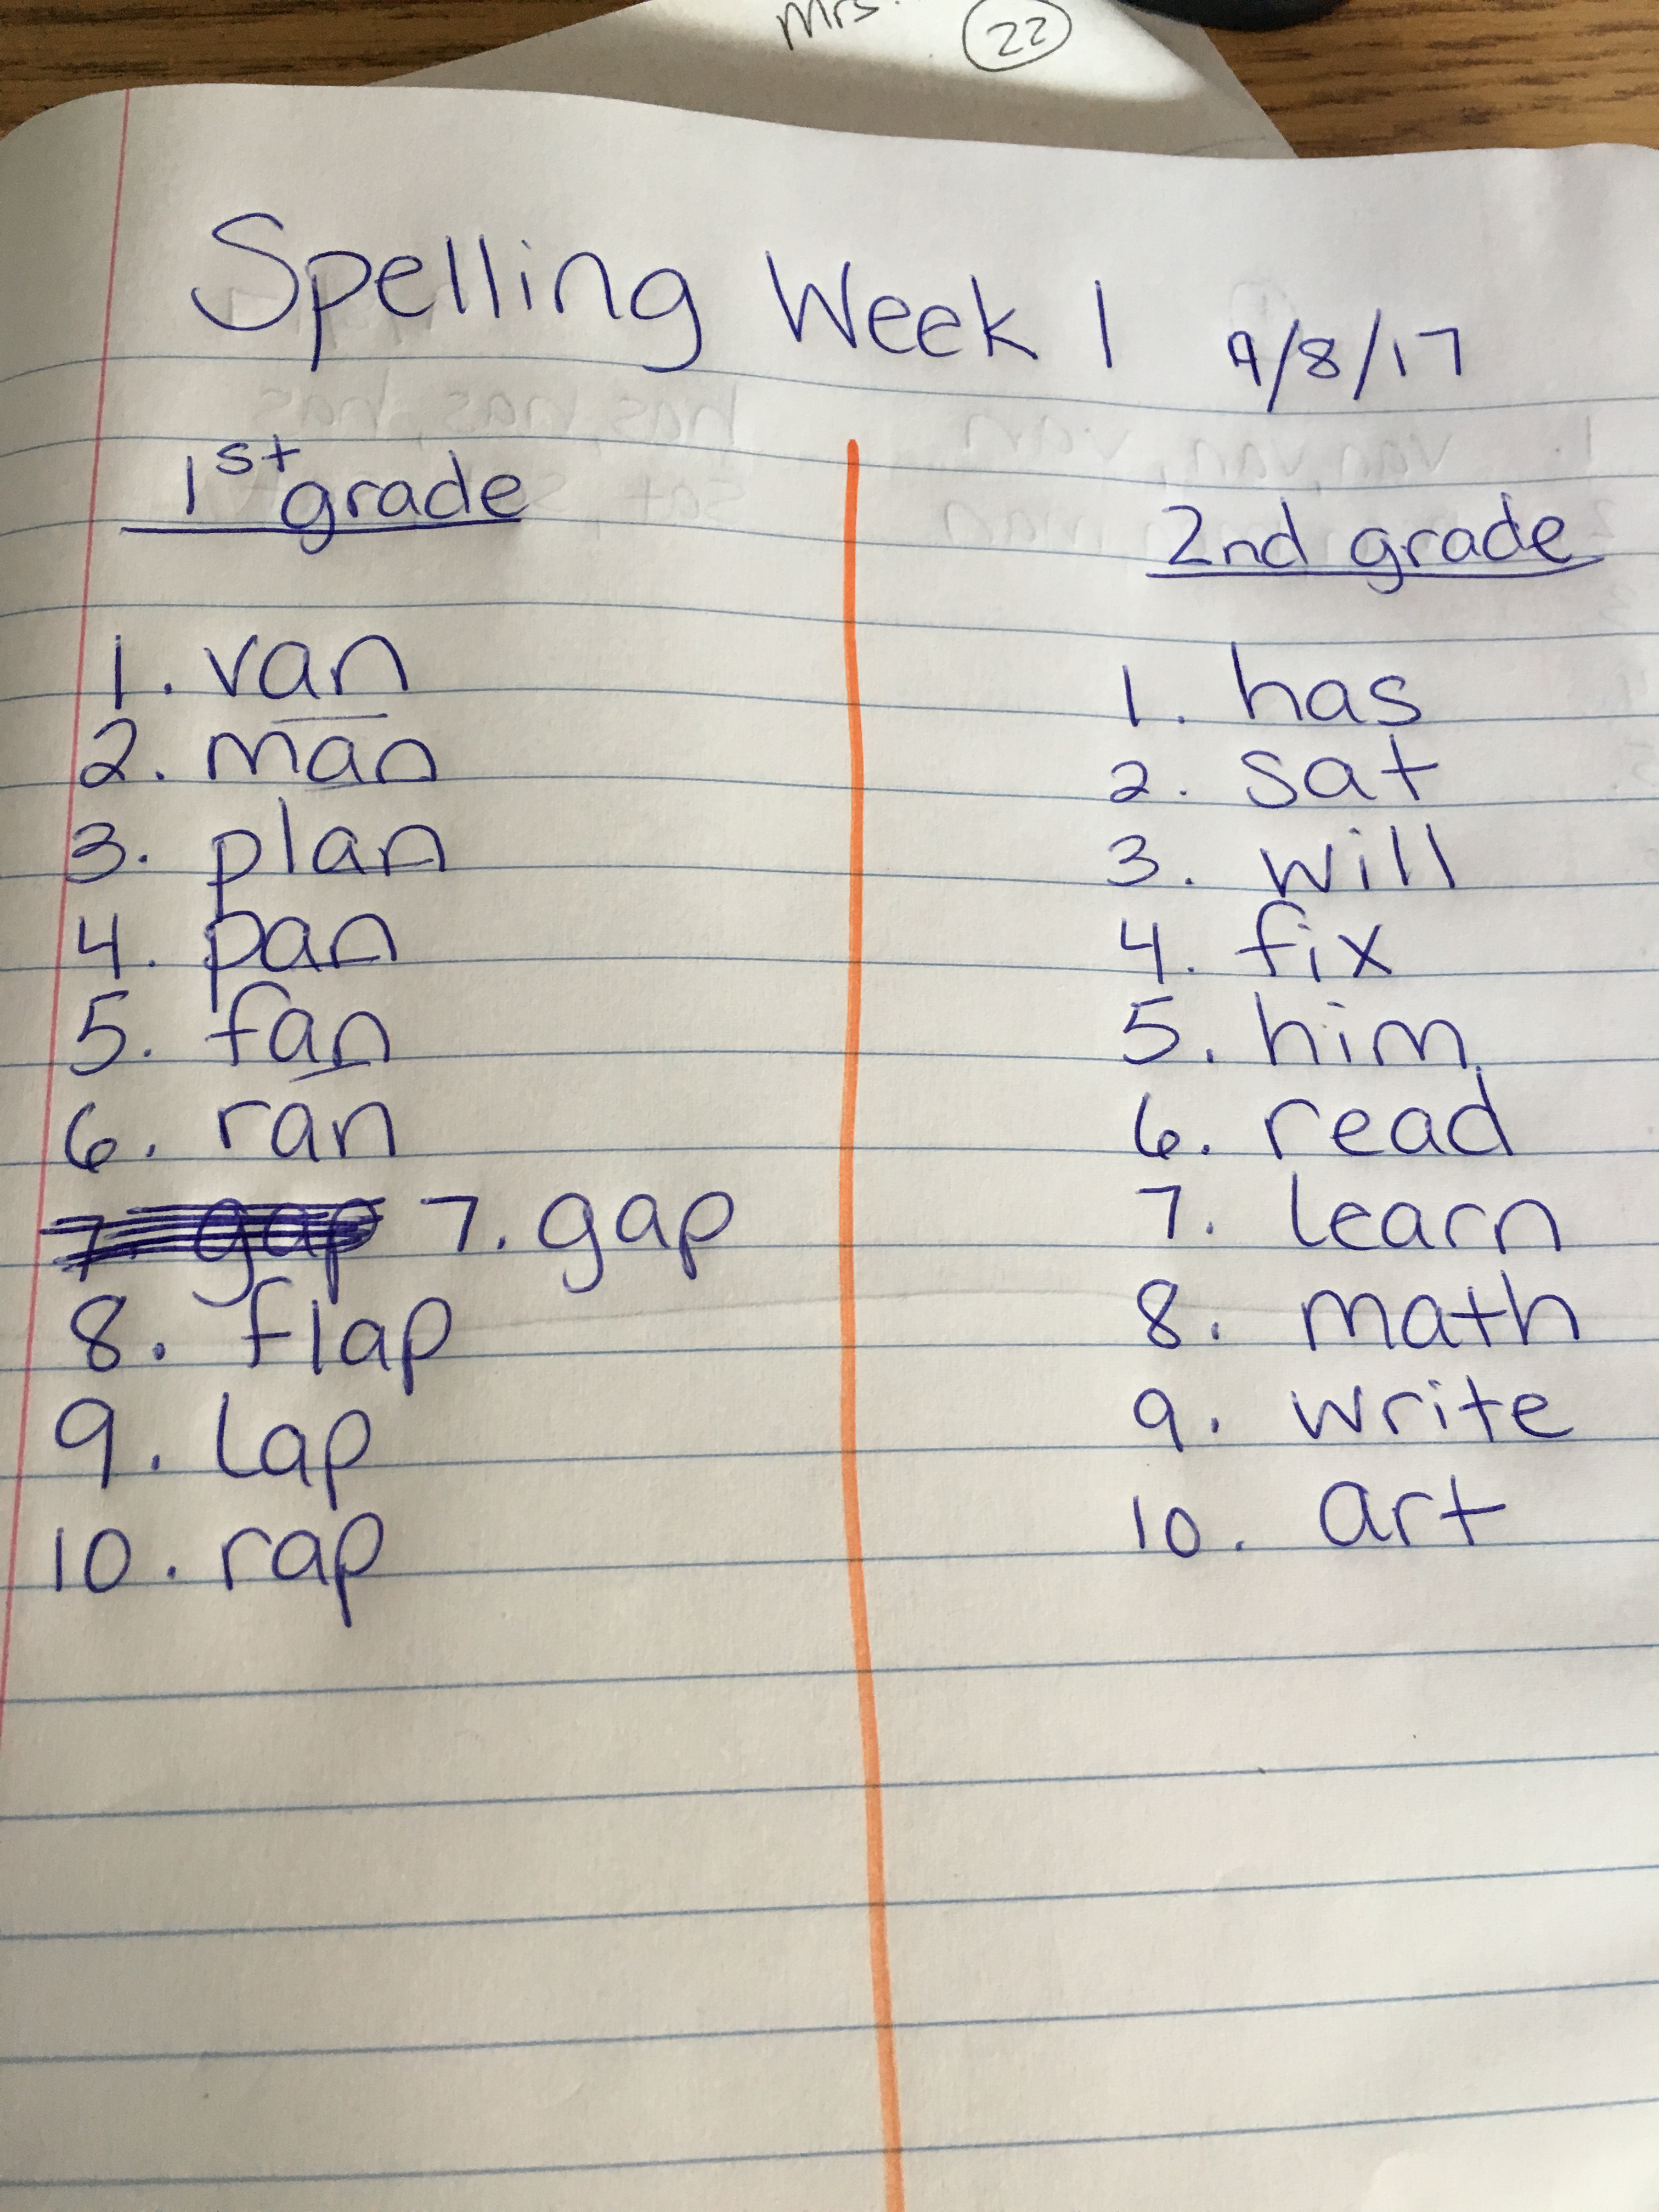 Mrs. 22
Spelling Week 1 9/8/17
1st grade
1. van
2. man
3. plan
4. pan
5. fan
6. ran
7. gap 7. gap
8. flap
9. lap
10. rap
2nd grade
1. has
2. sat
3. will
4. fix
5. him
6. read
7. learn
8. math
9. write
10. art